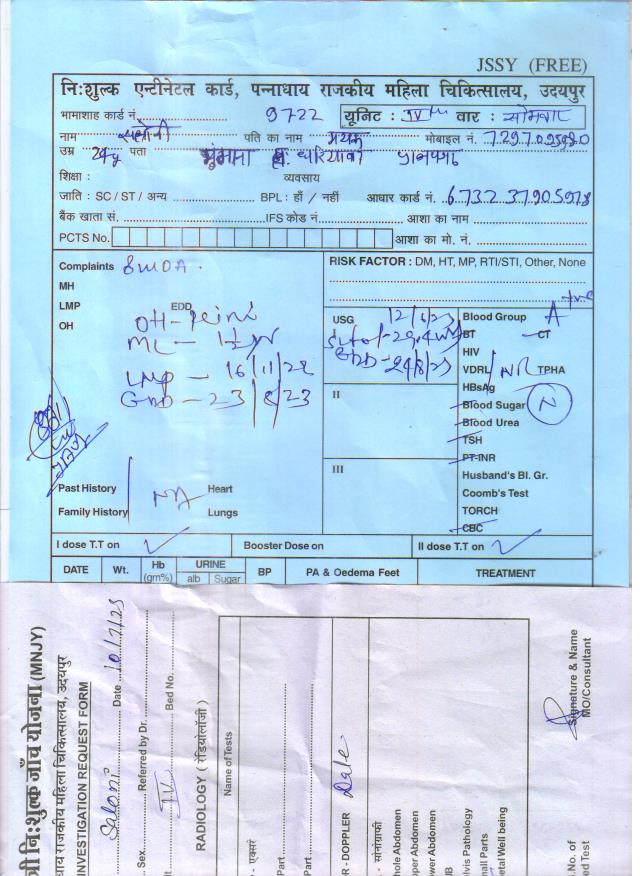 JSSY (FREE)
निःशुल्क एन्टीनेटल कार्ड, पन्नाधाय राजकीय महिला चिकित्सालय, उदयपुर
भामाशाह कार्ड नं. 9722 यूनिट : IV वार : सोमवार
नाम सलोनी पति का नाम मोबाइल नं.
उम्र 24y पता
शिक्षा : व्यवसाय
जाति : SC / ST / अन्य BPL : हाँ / नहीं आधार कार्ड नं. 6732 3790 5978
बैंक खाता सं. IFS कोड नं. आशा का नाम
PCTS No. आशा का मो. नं.
Complaints 8MOA.
MH
LMP EDD
OH
OH - Primi
ML - 1½ yr
LMP - 16/11/22
EDD - 23/8/23
Past History NA Heart
Family History Lungs
RISK FACTOR : DM, HT, MP, RTI/STI, Other, None
USG 12/6/23
EDD - 24/8/23
II
III
Blood Group A +ve
BT CT
HIV
VDRL NR TPHA
HBsAg
Blood Sugar N
Blood Urea
TSH
PT-INR
Husband's Bl. Gr.
Coomb's Test
TORCH
CBC
I dose T.T on Booster Dose on II dose T.T on
DATE Wt. Hb (gm%) URINE alb Sugar BP PA & Oedema Feet TREATMENT
री निःशुल्क जाँच योजना (MNJY)
राजकीय महिला चिकित्सालय, उदयपुर
INVESTIGATION REQUEST FORM
Saloni Date 10/7/23
Sex Referred by Dr.
IV Bed No.
RADIOLOGY ( रेडियोलॉजी )
Name of Tests
- एक्सरे
Part
Part
R - DOPPLER Date
- सोनोग्राफी
hole Abdomen
per Abdomen
wer Abdomen
UB
lvis Pathology
mall Parts
etal Well being
Signature & Name
MO/Consultant
No. of
ed Test